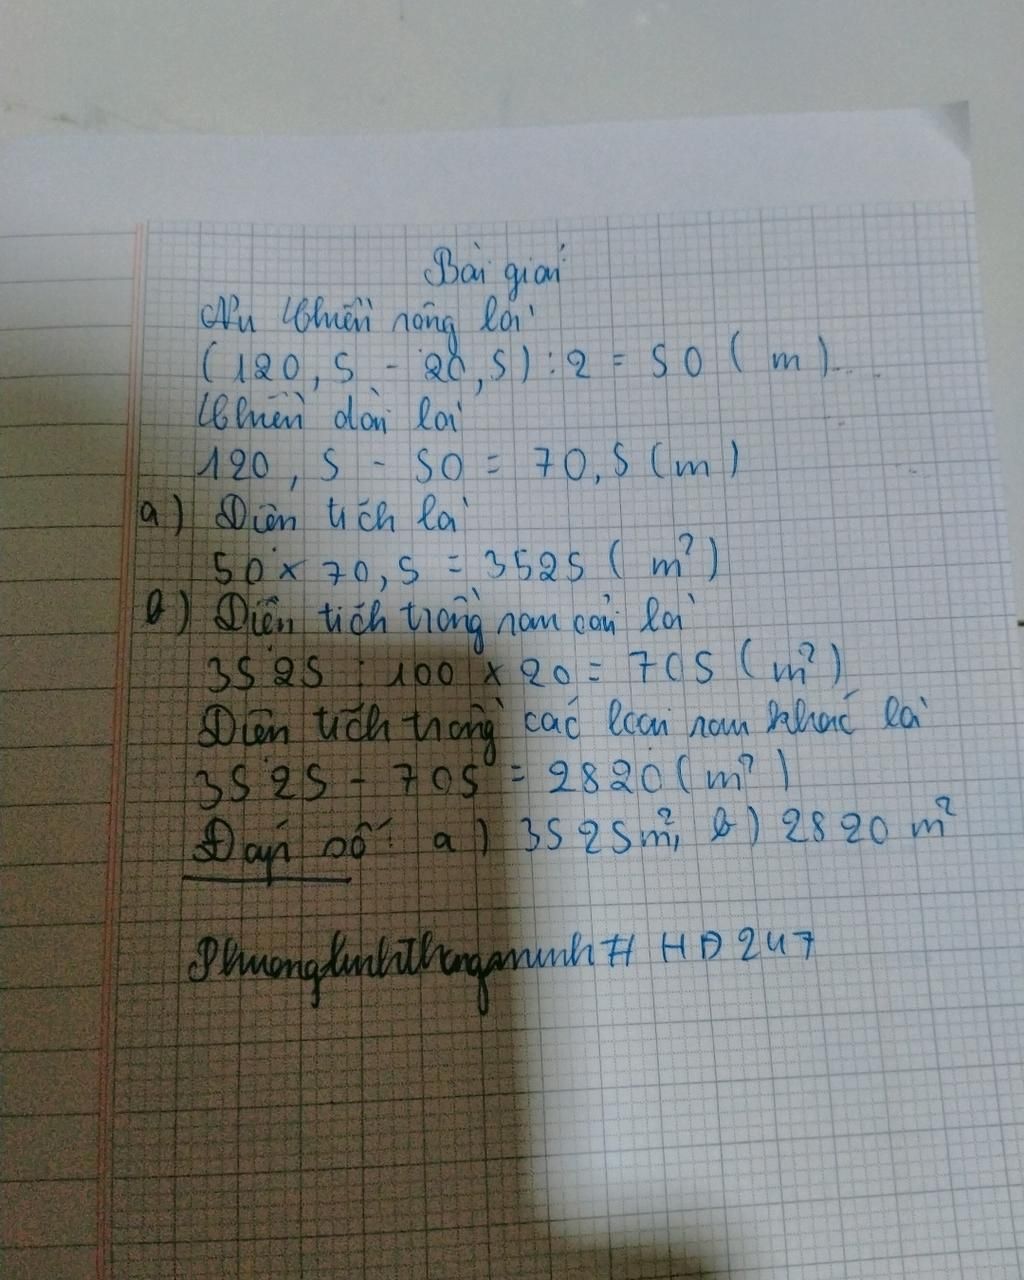 Bài giải
Chiều rộng là
(120,5 - 20,5) : 2 = 50 (m)
Chiều dài là
120,5 - 50 = 70,5 (m)
a) Diện tích là
50 x 70,5 = 3525 (m²)
b) Diện tích trồng rau cải là
3525 : 100 x 20 = 705 (m²)
Diện tích trồng các loại rau khác là
3525 - 705 = 2820 (m²)
Đáp số: a) 3525m², b) 2820 m²
# HD247